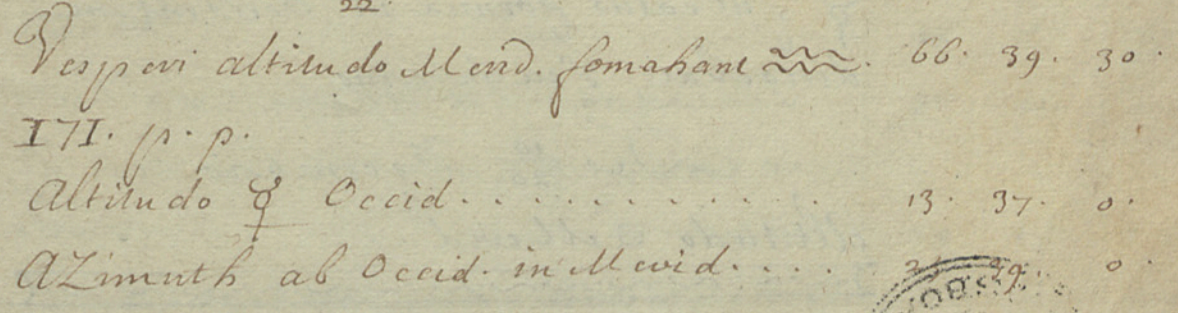 22.
Vesperi altitudo Merid. fomahant ♒. 66. 39. 30.
171. p. p.
Altitudo ☿ Occid. . . . . . . . . . . . 13. 37. 0.
AZimuth ab Occid. in Merid. . . . . 0.